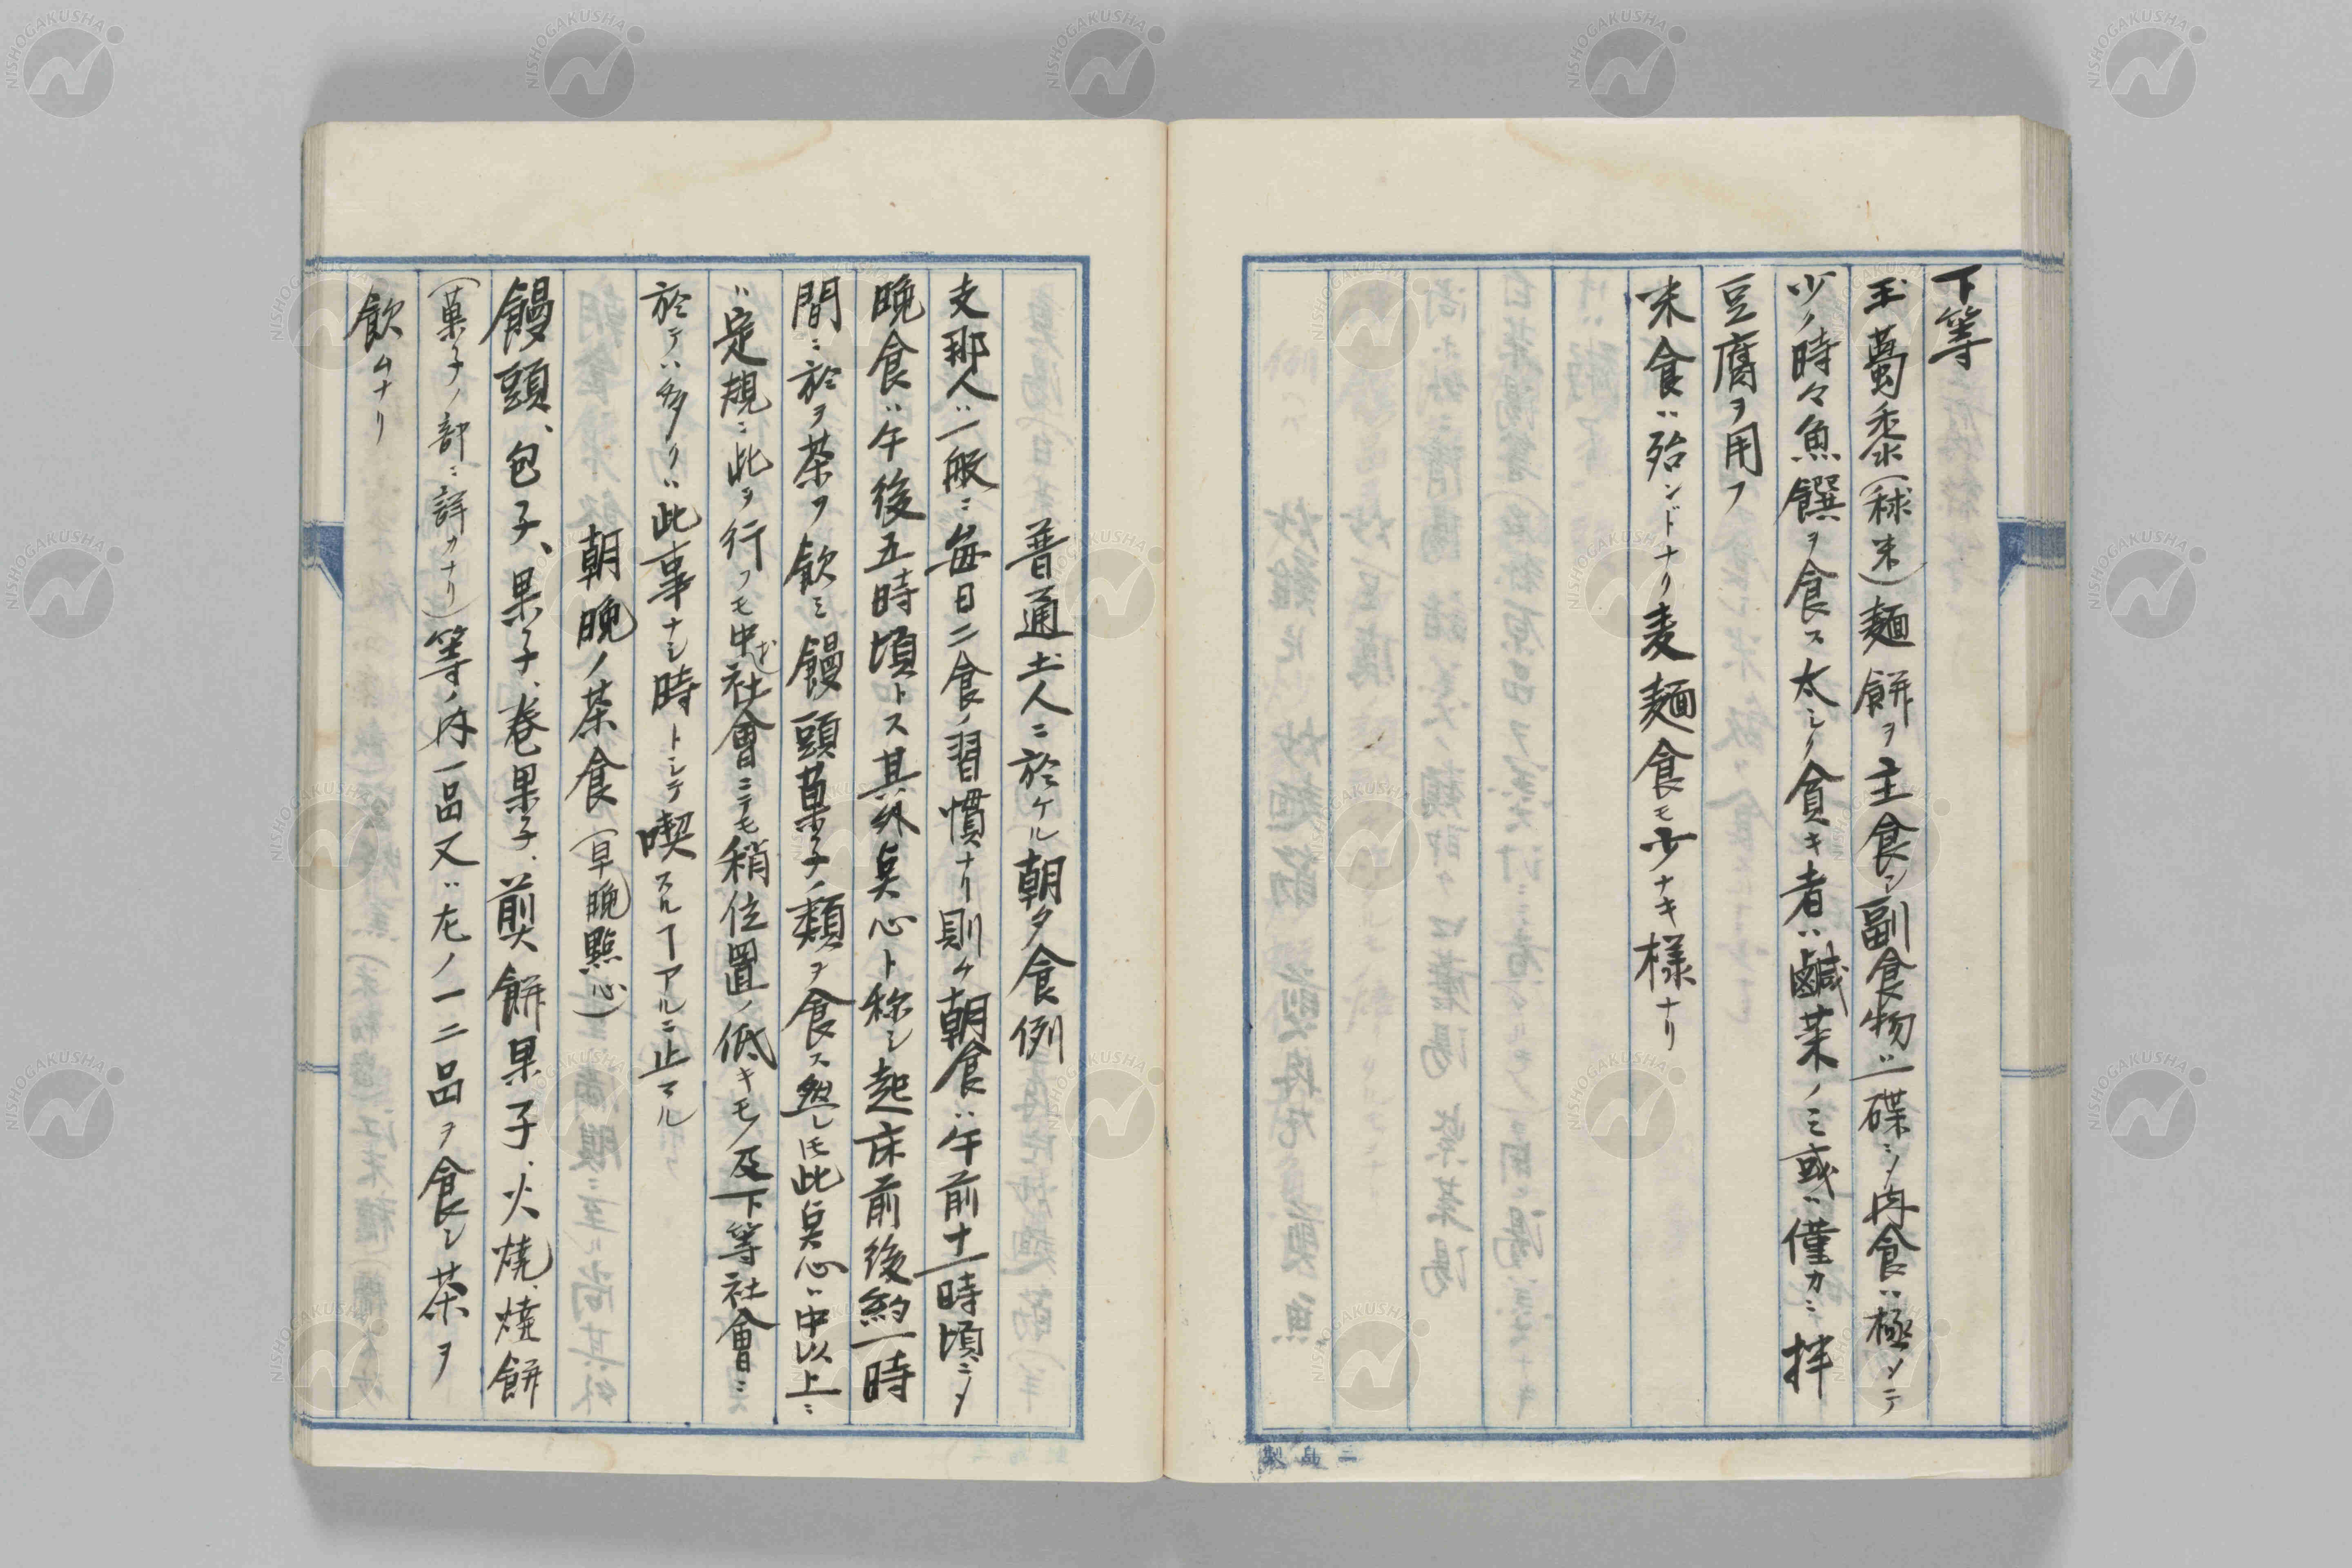 下等
玉蜀黍(秫米)麺餅ヲ主食シ副食物ハ一碟ニシテ肉食ハ極メテ
少ク時々魚饌ヲ食ス太シク貧キ者ハ鹹菜ノミ或ハ僅カニ拌
豆腐ヲ用フ
米食ハ殆ンドナク麦麺食モ少ナキ様ナリ
普通土人ニ於ケル朝夕食例
支那人ハ一般ニ毎日二食ノ習慣ナリ則ケ朝食ハ午前十一時頃ニシテ
晩食ハ午後五時頃トス其外点心ト称シ起床前後約一時
間ニ於ヲ茶ヲ飲ミ饅頭菓子ノ類ヲ食ス然レ𪜈此点心ハ中以上ニ
ハ定規ニ此ヲ行フモ中社會ニテモ稍位置ノ低キモノ及下等社會ニ
於テハ多クハ此事ナシ時トシテ喫スルヿアルニ止マル
朝晩ノ茶食(早晩點心)
饅頭、包子、果子、巻果子、煎餅果子、火燒、燒餅
(菓子ノ部ニ詳カナリ)等ノ内一品又ハ左ノ一二品ヲ食シ茶ヲ
飲ムナリ
二島製
NISHOGAKUSHA